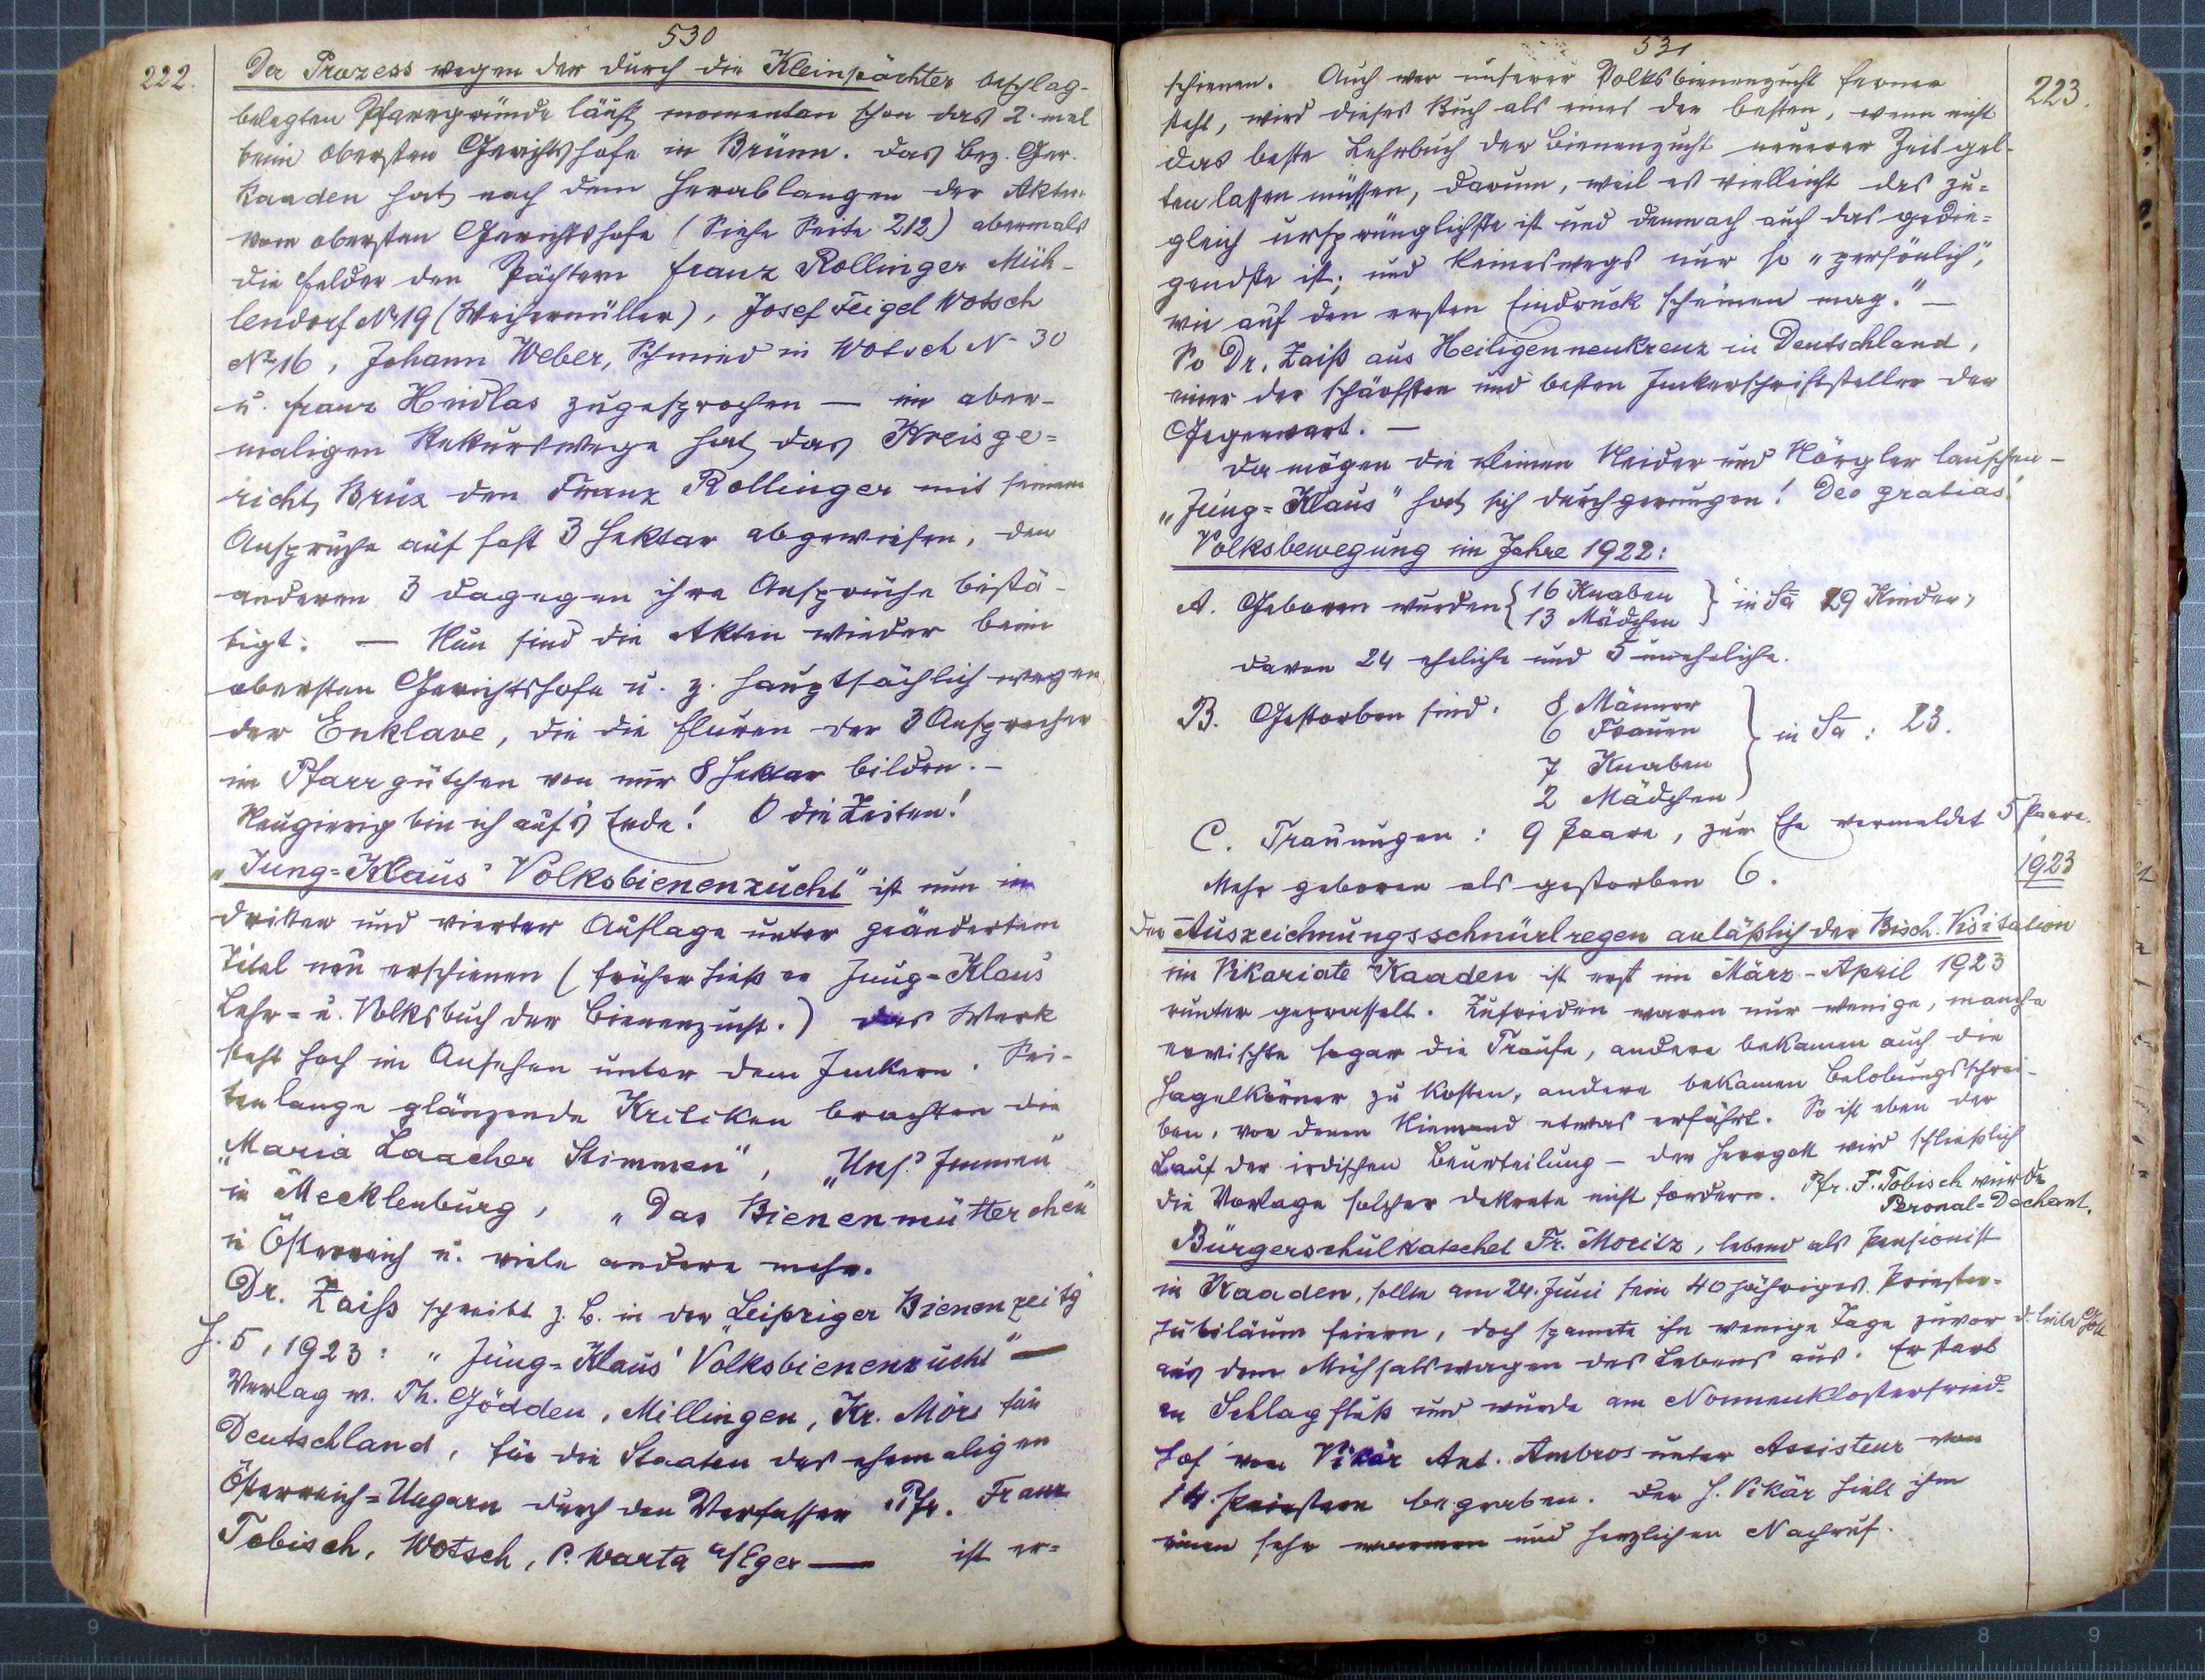 530
222.
Der Prozess wegen der durch die Kleinpächter beschlag-
belegten Pfarrgründe läuft momentan schon das 2. mal
beim obersten Gerichtshofe in Brünn. Das Bez. Ger.
Kaaden hat nach dem Herablangen der Akten
vom obersten Gerichtshofe (Siehe Seite 212) abermals
die Felder den Pächtern Franz Rollinger Müh-
lendorf № 19 (Weihermüller), Josef Feigel Wotsch
№ 16, Johann Weber, Schmied in Wotsch N- 30
u. Franz Hudlas zugesprochen — im aber-
maligen Rekurswege hat das Kreisge=
richt Brüx den Franz Rollinger mit seinem
Anspruche auf fast 3 Hektar abgewiesen, den
anderen 3 dagegen ihre Ansprüche bestä-
tigt. — Nun sind die Akten wieder beim
obersten Gerichtshofe u. z. hauptsächlich wegen
der Enklave, die die Fluren der 3 Ansprecher
im Pfarrgütchen von nur 8 Hektar bilden. –
Neugierig bin ich auf's Ende! O die Zeiten!
„Jung=Klaus' Volksbienenzucht" ist nun in
dritter und vierter Auflage unter geändertem
Titel neu erschienen (früher hieß er Jung=Klaus'
Lehr= u. Volksbuch der Bienenzucht.) Das Werk
steht hoch im Ansehen unter den Imkern. Sei-
tenlange glänzende Kritiken brachten die
„Maria Laacher Stimmen", „Uns' Immen"
in Mecklenburg, „Das Bienenmütterchen"
in Österreich u. viele andere mehr.
Dr. Zaiß schreibt z. B. in der Leipziger Bienenzeitg
H. 5, 1923: „Jung=Klaus' Volksbienenzucht" —
Verlag v. Th. Gödden, Millingen, Kr. Mörs für
Deutschland, für die Staaten des ehemaligen
Österreich=Ungarn durch den Verfasser Pfr. Franz
Tobisch, Wotsch, P. Warta a/Eger — ist er=
531
223.
schienen. Auch wer unserer Volksbienenzucht ferner
steht, wird dieses Buch als eines der besten, wenn nicht
das beste Lehrbuch der Bienenzucht neuerer Zeit gel-
ten lassen müssen, darum, weil es vielleicht das zu=
gleich ursprünglichste ist und demnach auch das gedie=
gendste ist; und keineswegs nur so „persönlich",
wie auf den ersten Eindruck scheinen mag." —
So Dr. Zaiß aus Heiligenneukreuz in Deutschland,
einer der schärfsten und besten Imkerschriftsteller der
Gegenwart. —
Da mögen die kleinen Neider und Nörgler lauschen –
„Jung=Klaus" hat sich durchgerungen! Deo gratias!
Volksbewegung im Jahre 1922:
A. Geboren wurden { 16 Knaben
13 Mädchen } in Sa 29 Kinder,
davon 24 eheliche und 5 uneheliche.
B. Gestorben sind: 8 Männer
6 Frauen
7 Knaben
2 Mädchen } in Sa: 23.
C. Trauungen: 9 Paare, zur Ehe vermeldet 5 Paare.
Mehr geboren als gestorben 6.
1923
Der Auszeichnungsschnürlregen anläßlich der Bisch. Visitation
im Vikariate Kaaden ist erst im März - April 1923
runter geprasselt. Zufrieden waren nur wenige, manche
erwischte sogar die Traufe, andere bekamen auch die
Hagelkörner zu kosten, andere bekamen Belobungsschrei-
ben, von denen Niemand etwas erfährt. So ist eben der
Lauf der irdischen Beurteilung – der Herrgott wird schließlich
die Vorlage solcher Dekrete nicht fordern. Pfr. F. Tobisch wurde
Peronal=Dechant.
Bürgerschulkatechet Fr. Moritz, lebend als Pensionist
in Kaaden, sollte am 24. Juni sein 40 jähriges Priester-
jubiläum feiern, doch spannte ihn wenige Tage zuvor d. liebe Gott
aus dem Mühsalswagen des Lebens aus. Er starb
an Schlagfluß und wurde am Nonnenklosterfried-
hof von Vikär Ant. Ambros unter Assisteur von
14 Priestern begraben. Der H. Vikär hielt ihm
einen sehr warmen und herzlichen Nachruf.